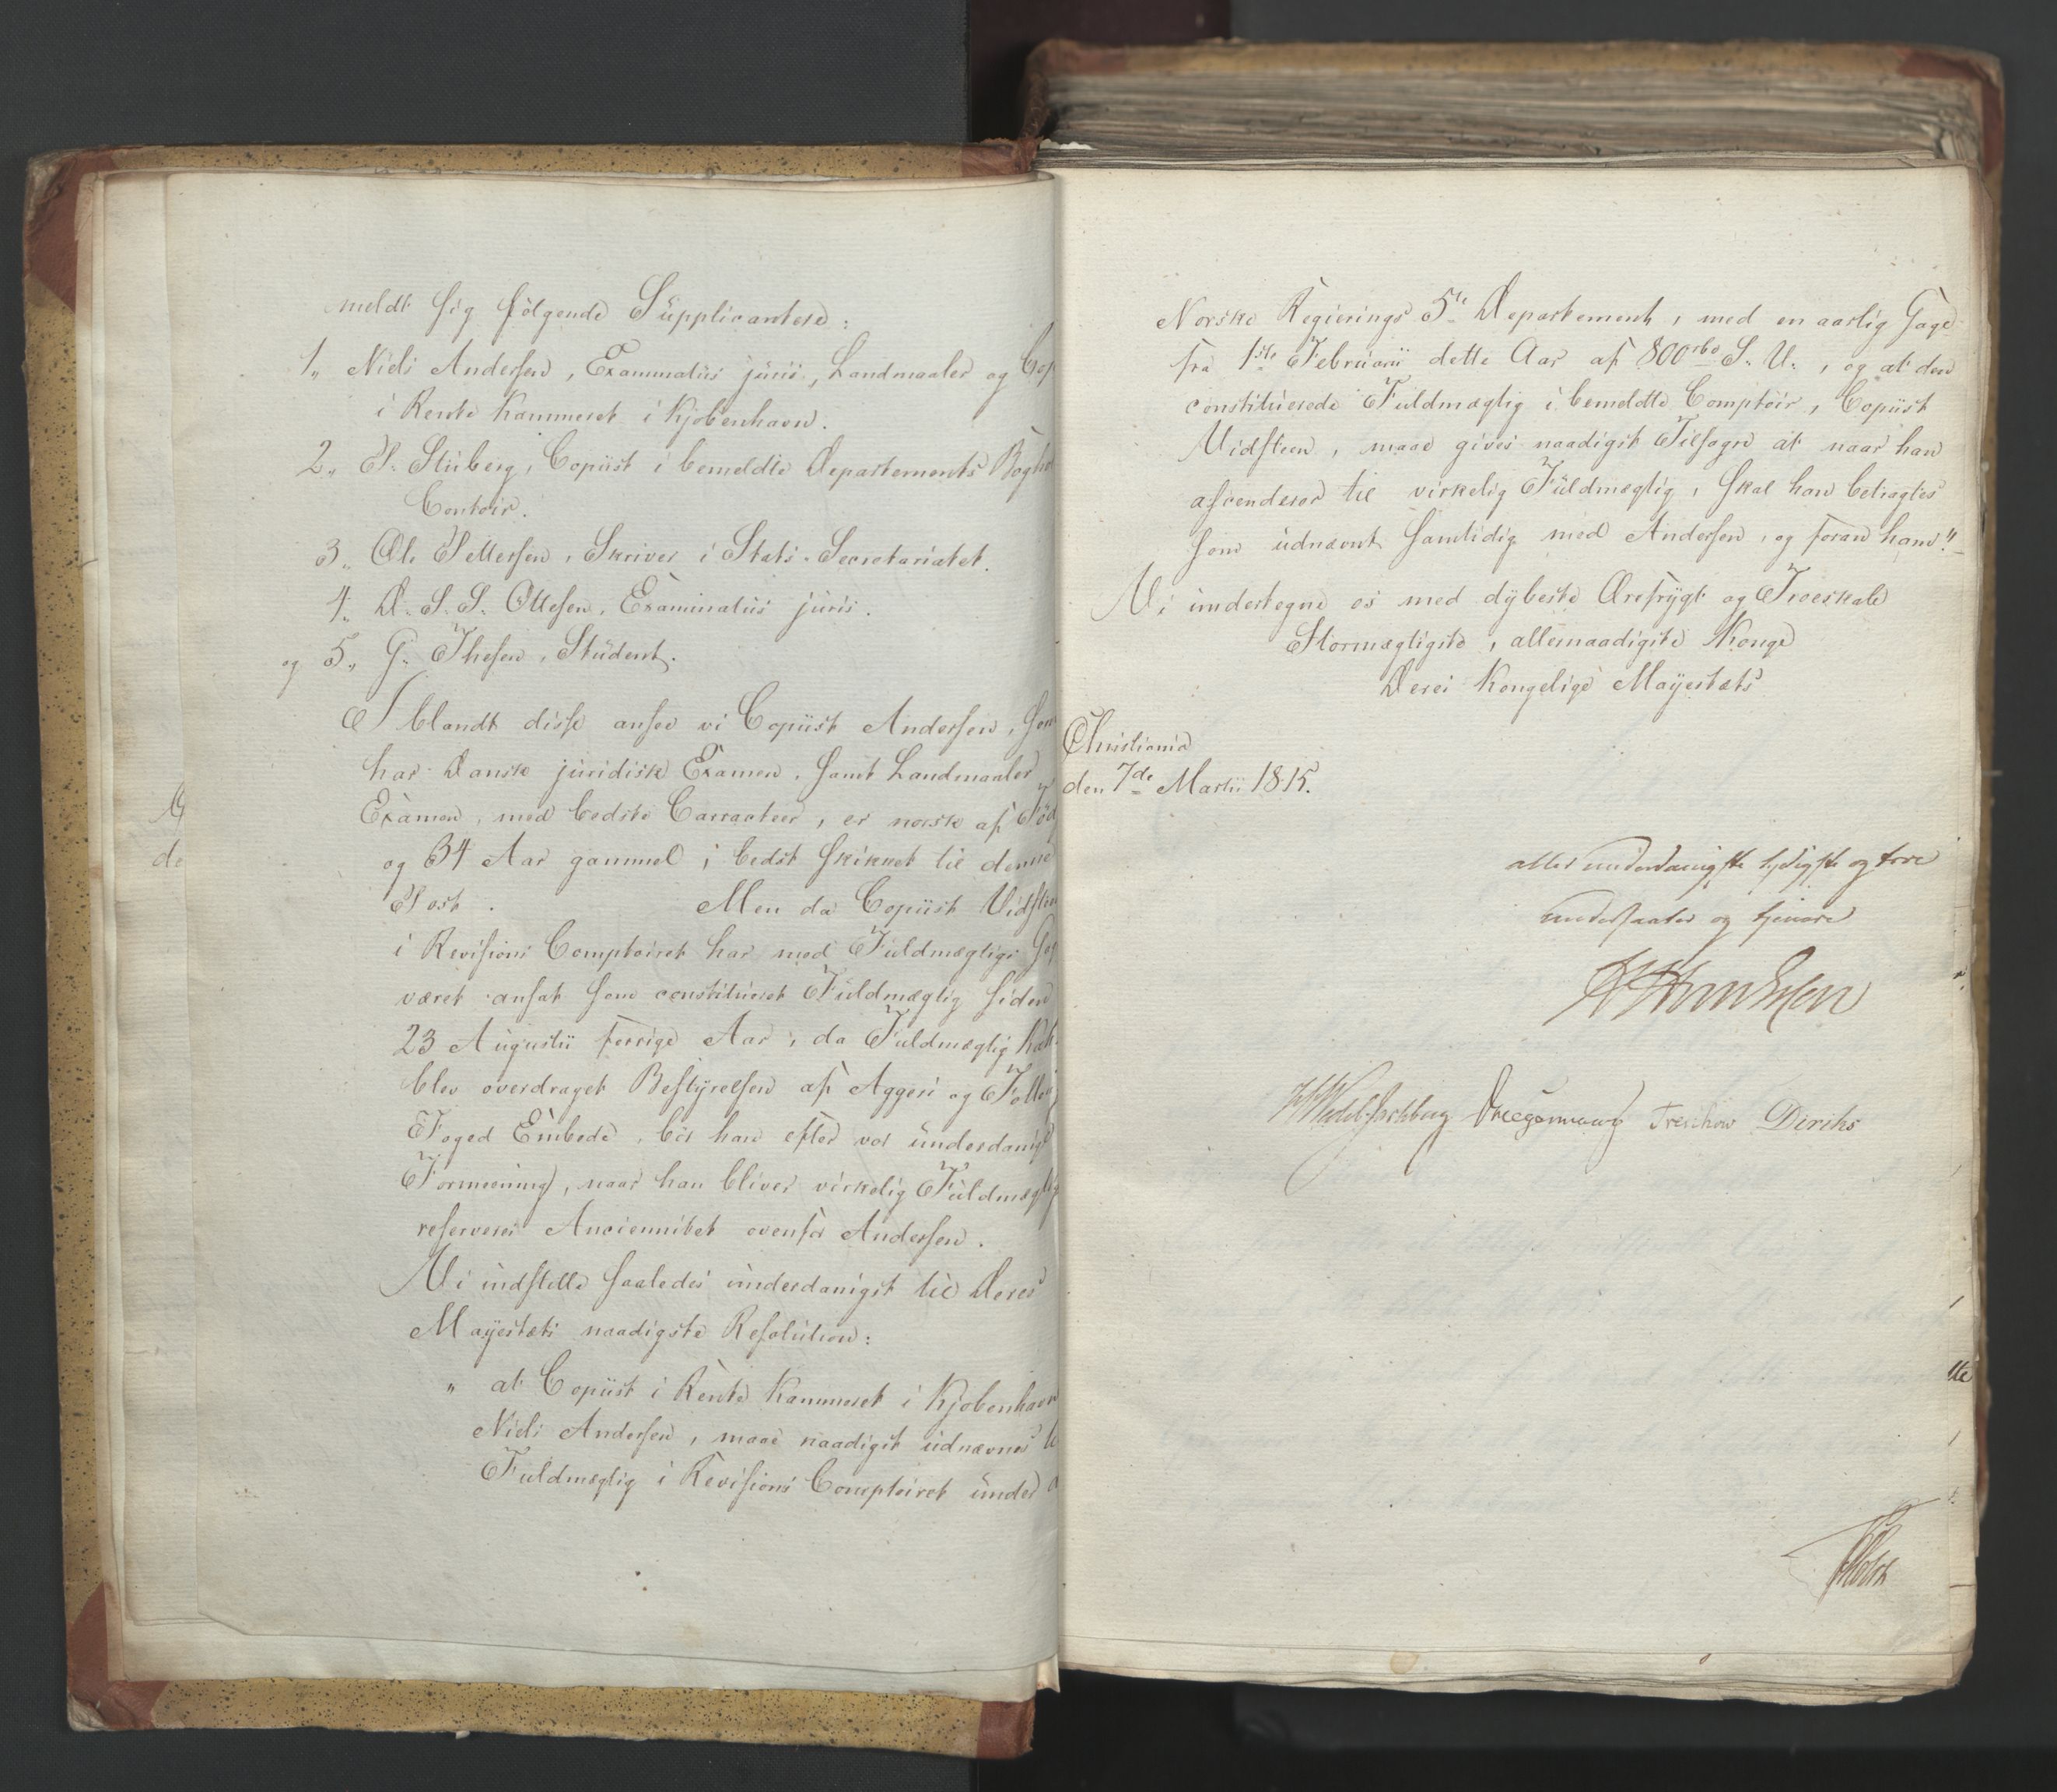 meldt sig følgende Supplicantere:
1., Niels Andersen, Examinatus juris, Landmaaler og Cop
i Rente Kammeret i Kjøbenhavn.
2., P. Stüberg, Copiist i bemeldte Departements Bogh
Contoir.
3., Ole Pettersen, Skriver i Stats-Secretariatet.
4., D. S. S. Ottesen, Examinatus juris.
og 5., G. Thesen, Student.
Iblandt disse ansee vi Copiist Andersen, som
har Dansk juridisk Examen, samt Landmaaler
Examen, med bedste Carracteer, er norsk af Fød
og 34 Aar gammel, bedst skikket til denne
Post. Men da Copiist Vidsteen
i Revisions Comptoiret har med Fuldmægtigs Gag
været ansat som constitueret Fuldmægtig siden
23 Augusti forrige Aar, da Fuldmægtig
blev overdraget Bestyrelsen af Aggers og Follo
Foged Embede, bør han efter vor underdanigst
Formeening, naar han bliver virkelig Fuldmægtig
reserveres Anciennitet ovenfor Andersen.
Vi indstille saaledes underdanigst til Deres
Mayestæts naadigste Resolution:
" at Copiist i Rente Kammeret i Kjøbenhavn
Niels Andersen, maae naadigst udnævnes ti
Fuldmægtig i Revisions Comptoiret under
Norske Regierings 5te Departement, med en aarlig Gage
fra 1ste Februarii dette Aar af 800 rbd S. V., og at den
constituerede Fuldmægtig i bemeldte Comptoir, Copiist
Vidsteen, maae gives naadigst Tilsagn at naar han
ascenderer til virkelig Fuldmægtig, skal han betragtes
som udnævnt samtidig med Andersen, og foran ham."
Vi undertegne os med dybeste Ærefrygt og Troeskab
Stormægtigste, allernaadigste Konge
Deres Kongelige Mayestæts
Christiania
den 7de Martii 1815.
allerunderdanigste lydigste og troe
undersaater og tjenere
M Wedel Jarlsberg Treschow Diriks